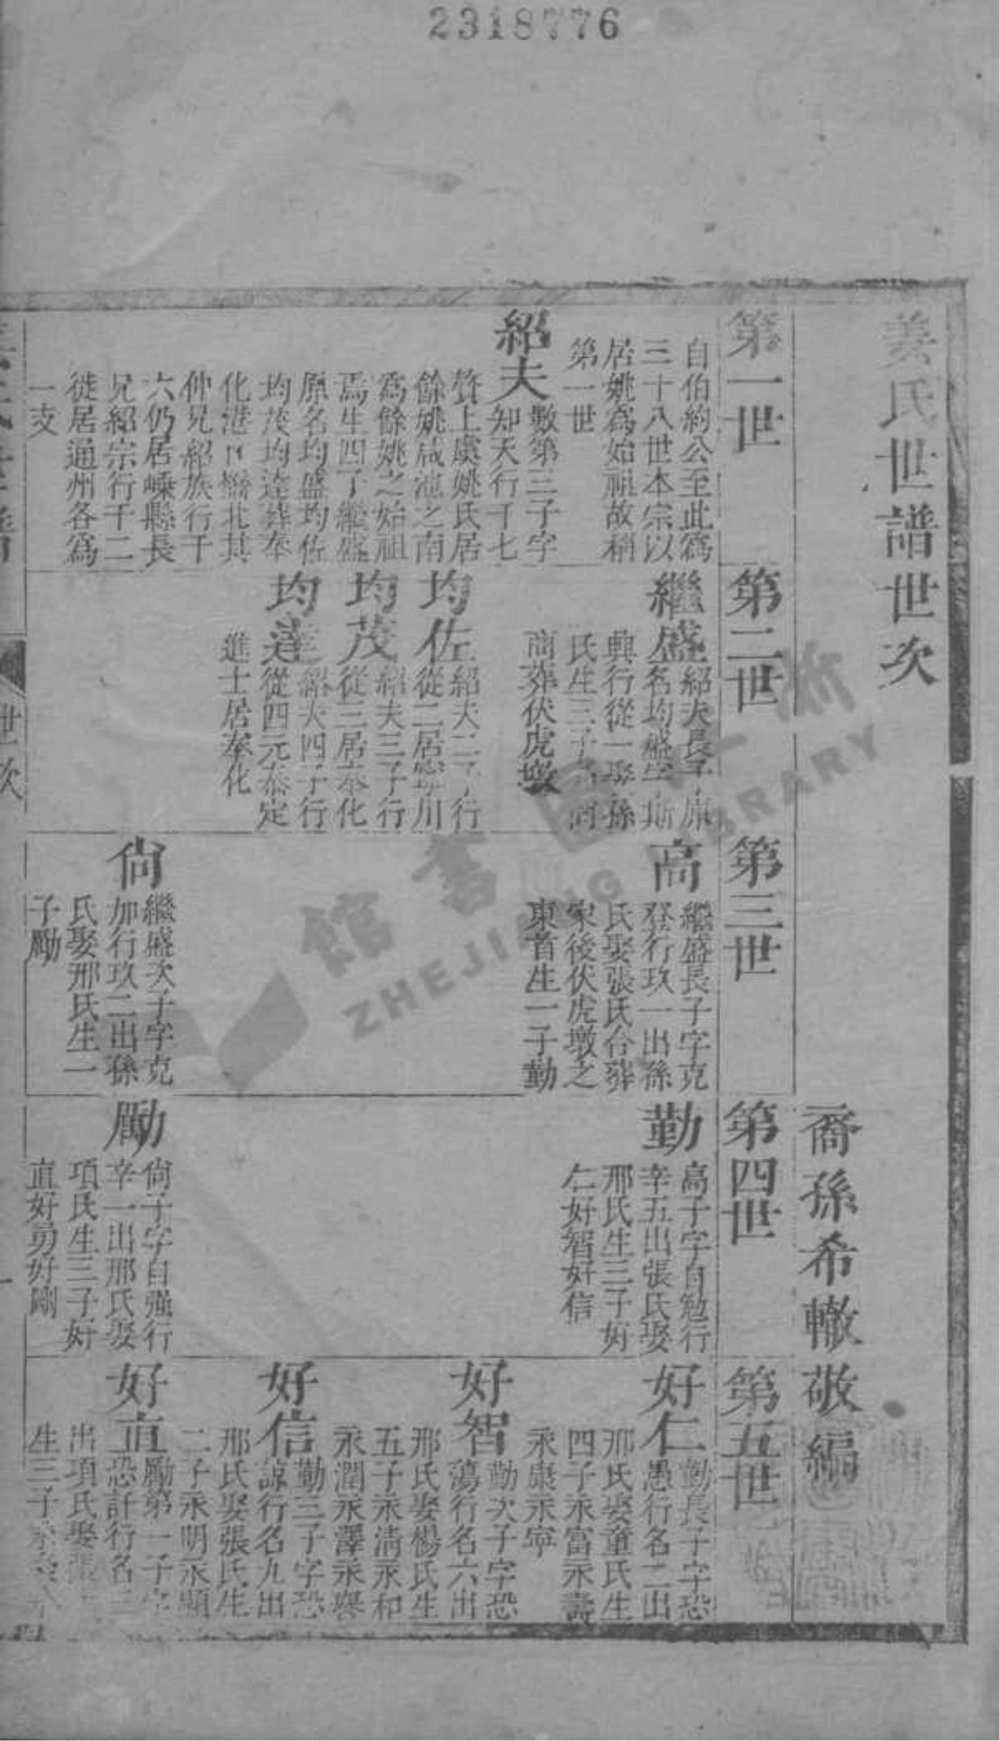 2318776
姜氏世譜世次
裔孫希轍敬編
第一世
自伯約公至此爲
三十八世本宗以
居姚爲始祖故稱
第一世
紹夫
數第三子字
知天行千七
贅上虞姚氏居
餘姚咸池之南
爲餘姚之始祖
焉生四子繼盛
原名均盛均佐
均茂均達葬奉
化港口橋北其
仲兄紹族行千
六仍居嵊縣長
兄紹宗行千二
徙居通州各爲
一支
第二世
繼盛
紹夫長子原
名均盛字斯
興行從一娶孫
氏生二子高尚
商葬伏虎墩
均佐
紹夫二子行
從二居寧川
均茂
紹夫三子行
從三居奉化
均達
紹夫四子行
從四元泰定
進士居奉化
第三世
高
繼盛長子字克
登行玖一出孫
氏娶張氏合葬
宋後伏虎墩之
東首生一子勤
尙
繼盛次子字克
加行玖二出孫
氏娶邢氏生一
子勵
第四世
勤
高子字自勉行
辛五出張氏娶
邢氏生三子好
仁好智好信
勵
尙子字自強行
辛一出邢氏娶
項氏生三子好
直好勇好剛
第五世
好仁
勤長子字恐
愚行名二出
邢氏娶童氏生
四子永富永壽
永康永寧
好智
勤次子字恐
蕩行名六出
邢氏娶楊氏生
五子永淸永和
永潤永澤永譽
好信
勤三子字恐
諒行名九出
邢氏娶張氏生
二子永明永顯
好直
勵第一子字
恐訐行名三
出項氏娶張
生三子永
世次
館書圖
ZHEJIANG LIBRARY